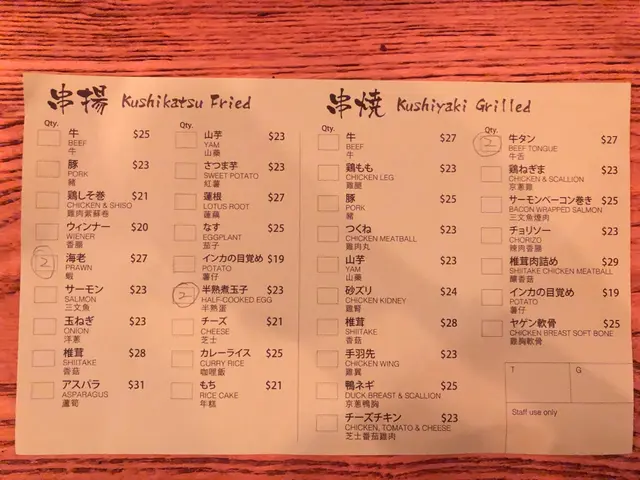 串揚 Kushikatsu Fried
Qty.
牛 $25
BEEF
牛
豚 $23
PORK
豬
鶏しそ巻 $21
CHICKEN & SHISO
雞肉紫蘇卷
ウィンナー $20
WIENER
香腸
2 海老 $27
PRAWN
蝦
サーモン $23
SALMON
三文魚
玉ねぎ $23
ONION
洋蔥
椎茸 $28
SHIITAKE
香菇
アスパラ $31
ASPARAGUS
蘆筍
Qty.
山芋 $23
YAM
山藥
さつま芋 $23
SWEET POTATO
紅薯
蓮根 $27
LOTUS ROOT
蓮藕
なす $25
EGGPLANT
茄子
インカの目覚め $19
POTATO
薯仔
2 半熟煮玉子 $23
HALF-COOKED EGG
半熟蛋
チーズ $21
CHEESE
芝士
カレーライス $25
CURRY RICE
咖喱飯
もち $21
RICE CAKE
年糕
串焼 Kushiyaki Grilled
Qty.
牛 $27
BEEF
牛
鶏もも $23
CHICKEN LEG
雞腿
豚 $23
PORK
豬
つくね $23
CHICKEN MEATBALL
雞肉丸
山芋 $23
YAM
山藥
砂ズリ $24
CHICKEN KIDNEY
雞腎
椎茸 $28
SHIITAKE
香菇
手羽先 $23
CHICKEN WING
雞翼
鴨ネギ $25
DUCK BREAST & SCALLION
京蔥鴨胸
チーズチキン $23
CHICKEN, TOMATO & CHEESE
芝士番茄雞肉
Qty.
2 牛タン $27
BEEF TONGUE
牛舌
鶏ねぎま $23
CHICKEN & SCALLION
京蔥雞
サーモンベーコン巻き $25
BACON WRAPPED SALMON
三文魚煙肉
チョリソー $23
CHORIZO
辣肉香腸
椎茸肉詰め $29
SHIITAKE CHICKEN MEATBALL
釀香菇
インカの目覚め $19
POTATO
薯仔
ヤゲン軟骨 $25
CHICKEN BREAST SOFT BONE
雞胸軟骨
T G
Staff use only